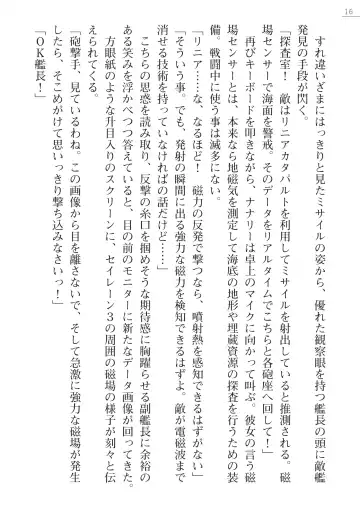 16
すれ違いざまにはっきりと見たミサイルの姿から、優れた観察眼を持つ艦長の頭に敵艦
発見の手段が閃く。
「探査室！　敵はリニアカタパルトを利用してミサイルを射出していると推測される。磁
場センサーで海面を警戒。そのデータをリアルタイムでこちらと各砲座へ回して！」
再びキーボードを叩きながら、ナナリーは卓上のマイクに向かって叫ぶ。彼女の言う磁
場センサーとは、本来なら地磁気を測定して海底の地形や埋蔵資源の探査を行うための装
備。戦闘中に使う事は滅多にない。
「リニア……な、なるほど！　磁力の反発で撃つなら、噴射熱を感知できるはずがない」
「そういう事。でも、発射の瞬間に出る強力な磁力を検知できるはずよ。敵が電磁波まで
消せる技術を持っていなければの話だけど……」
こちらの思惑を読み取り、反撃の糸口を掴めそうな期待感に胸躍らせる副艦長に余裕の
ある笑みを浮かべつつ答えていると、目の前のモニターに新たなデータ画像が回ってきた。
方眼紙のような升目入りのスクリーンに、セイレーン３の周囲の磁場の様子が刻々と伝
えられてくる。
「砲撃手、見ているわね。この画像から目を離さないで、そして急激に強力な磁場が発生
したら、そこめがけて思いっきり撃ち込みなさいっ！」
「ＯＫ艦長！」